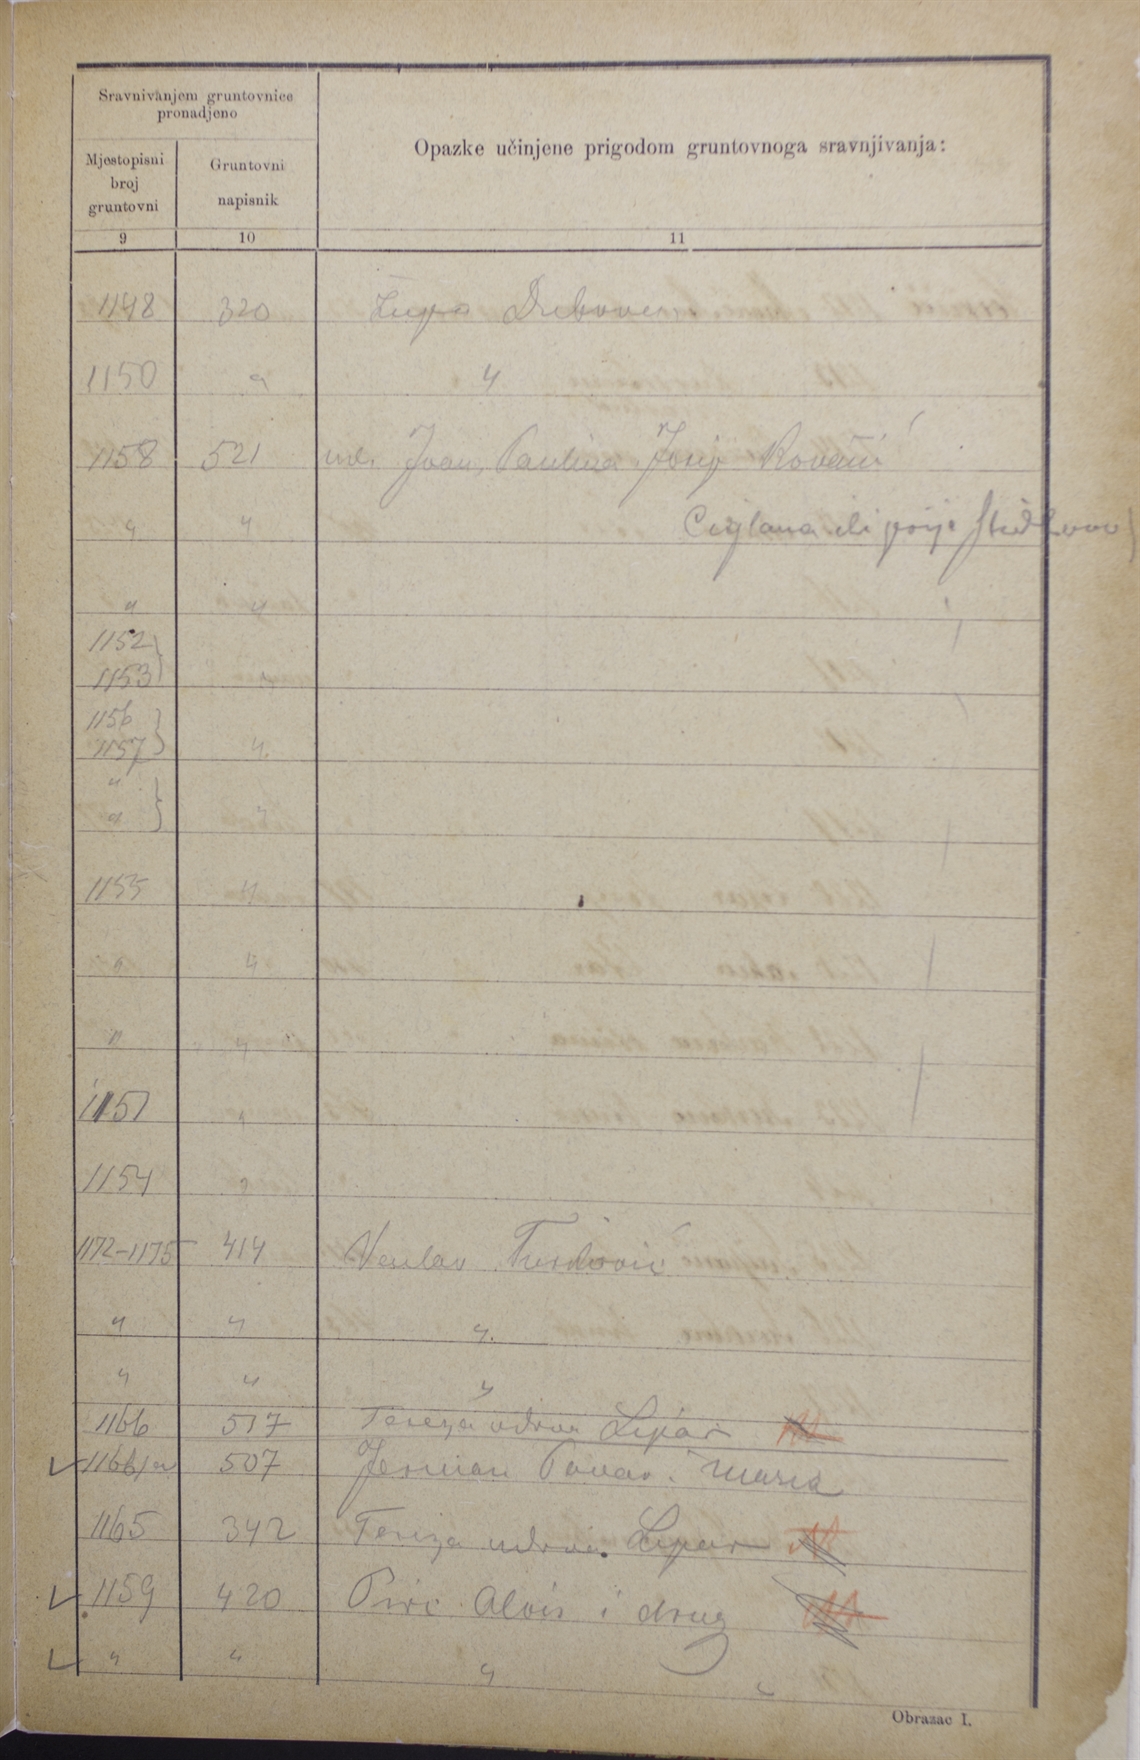 Sravnivanjem gruntovnice
pronadjeno
Opazke učinjene prigodom gruntovnoga sravnjivanja:
Mjestopisni
broj
gruntovni
Gruntovni
napisnik
9 10 11
1148 320 Župa Dubovec
1150 " "
1158 521 ml. Ivan, Paulina Josip Kovačić
" " Ciglana ili prije
" "
1152
1153 "
1156
1157 "
"
" "
1155 "
" "
" "
1151 "
1154 "
1172-1175 414
" " "
" " "
1166 517 Tereza udova Lipar
1166/a 507 Jerman Pavao i Maria
1165 342 Tereza udova Lipar
1159 420 Pirc Alois i drug
" " "
Obrazac I.